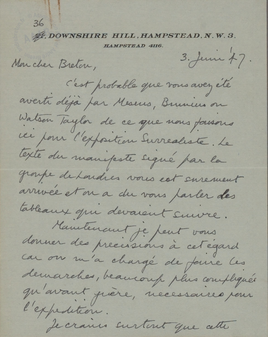 36
21, DOWNSHIRE HILL, HAMPSTEAD, N.W. 3.
HAMPSTEAD 4116.
3 Juin '47.
Mon cher Breton,
C'est probable que vous avez été
averti déjà par Mesens, Brunius ou
Watson Taylor de ce que nous faisons
ici pour l'exposition Surrealiste. Le
texte du manifeste signé par la
groupe de Londres vous est surement
arrivée et on a du vous parler des
tableaux qui devaient suivre.
Maintenant je peut vous
donner des precisions à cet égard
car on m'a chargé de faire les
demarches, beaucoup plus compliqués
qu'avant guère, necessaires pour
l'expedition.
Je crains surtout que cette